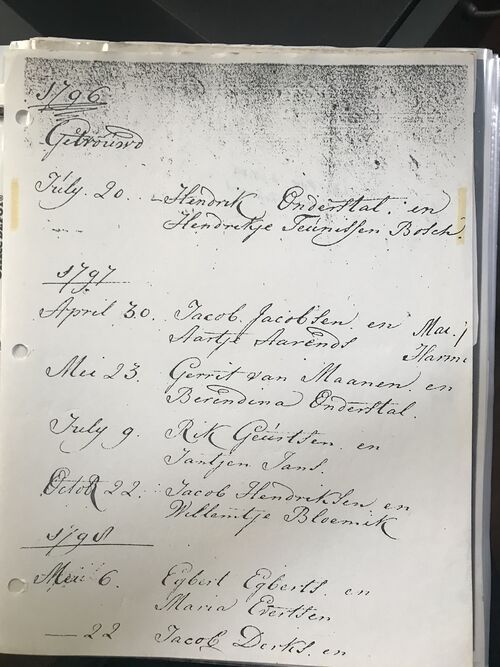 1796
Getrouwd
July. 20. Hendrik Onderstal. en
Hendrikje Teunissen Bosch.
1797
April 30. Jacob Jacobsen. en
Aartje Aarends
Mei 23. Gerrit van Maanen. en
Berendina Onderstal.
July 9. Rik Geurtsen. en
Jantjen Jans.
Octob 22. Jacob Hendriksen en
Willemtje Bloemik
1798
Mei 6. Egbert Egberts. en
Maria Evertsen
— 22 Jacob Derks. en